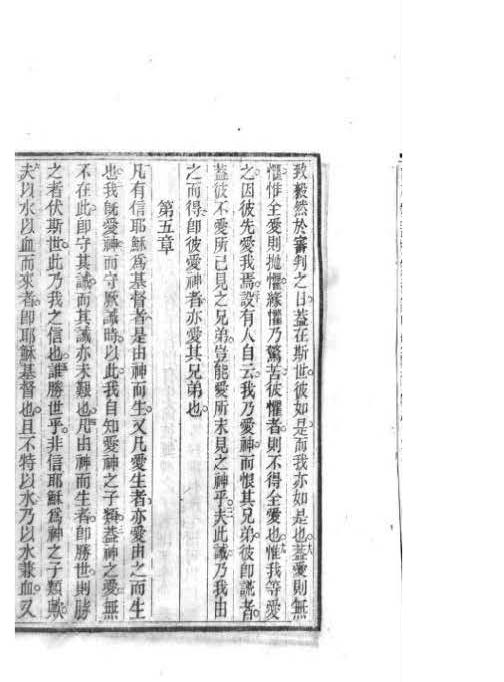 致毅然於審判之日蓋在斯世彼如是而我亦如是也蓋愛則無
懼惟全愛則拋懼緣懼乃驚苦彼懼者則不得全愛也惟我等愛
之因彼先愛我焉設有人自云我乃愛神而恨其兄弟彼卽謊者
蓋彼不愛所已見之兄弟豈能愛所未見之神乎夫此誡乃我由
之而得卽彼愛神者亦愛其兄弟也
第五章
凡有信耶穌為基督者是由神而生又凡愛生者亦愛由之而生
也我旣愛神而守厥誡時以此我自知愛神之子類蓋神之愛無
不在此卽守其誡而其誡亦未艱也凡由神而生者卽勝世則勝
之者伏斯世此乃我之信也誰勝世乎非信耶穌為神之子類歟
夫以水以血而來者卽耶穌基督也且不特以水乃以水兼血又